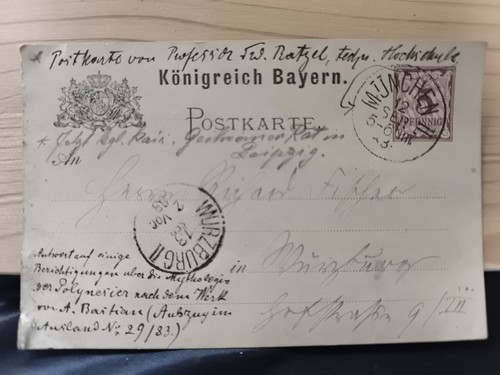 * Postkarte von Professor Frd. Ratzel, techn. Hochschule
Königreich Bayern.
MÜNCHEN III
5 PFENNIG
POSTKARTE.
* Jetzt kgl.
Leipzig.
An
Herrn Richard
in Würzburg
Hofstraße 9/III
WÜRZBURG II
2 Vor
Antwort auf einige
Berichtigungen über die Mythologie
der Polynesier nach dem Werk
von A. Bastian (Auszug im
Ausland No. 29/83.)